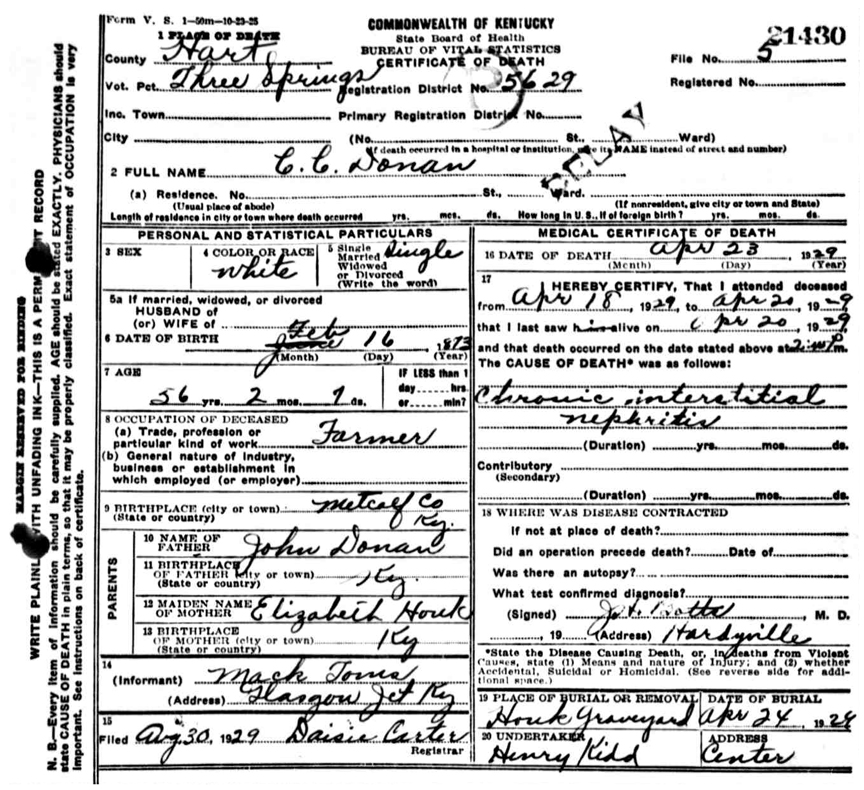 Form V. S. 1—50m—10-23-25
COMMONWEALTH OF KENTUCKY
State Board of Health
BUREAU OF VITAL STATISTICS
CERTIFICATE OF DEATH
21430
1 PLACE OF DEATH
County Hart
File No. 5
Vot. Pct. Three Springs Registration District No. 5629
Registered No.
Inc. Town Primary Registration District No.
City (No. St., Ward)
(If death occurred in a hospital or institution, give its NAME instead of street and number)
DELAY
2 FULL NAME C. C. Donan
(a) Residence. No. St., Ward.
(Usual place of abode) (If nonresident, give city or town and State)
Length of residence in city or town where death occurred yrs. mos. ds. How long in U. S., if of foreign birth? yrs. mos. ds.
PERSONAL AND STATISTICAL PARTICULARS
3 SEX
4 COLOR OR RACE White
5 Single Married Widowed or Divorced (Write the word) Single
5a If married, widowed, or divorced
HUSBAND of
(or) WIFE of
6 DATE OF BIRTH Feb 16 1873
(Month) (Day) (Year)
7 AGE
56 yrs. 2 mos. 7 ds.
IF LESS than 1
day hrs.
or min?
8 OCCUPATION OF DECEASED
(a) Trade, profession or
particular kind of work Farmer
(b) General nature of industry,
business or establishment in
which employed (or employer)
9 BIRTHPLACE (city or town) Metcalf Co
(State or country) Ky.
PARENTS
10 NAME OF
FATHER John Donan
11 BIRTHPLACE
OF FATHER (city or town)
(State or country) Ky.
12 MAIDEN NAME
OF MOTHER Elizabeth Houk
13 BIRTHPLACE
OF MOTHER (city or town)
(State or country) Ky
14
(Informant) Mack Toms
(Address) Glasgow Jct Ky
15
Filed Aug 30, 1929 Daisie Carter
Registrar
MEDICAL CERTIFICATE OF DEATH
16 DATE OF DEATH Apr 23 1929
(Month) (Day) (Year)
17
I HEREBY CERTIFY, That I attended deceased
from Apr 18, 1929, to Apr 20, 1929
that I last saw him alive on Apr 20, 1929
and that death occurred on the date stated above at m.
The CAUSE OF DEATH* was as follows:
Chronic interstitial
nephritis
(Duration) yrs. mos. ds.
Contributory
(Secondary)
(Duration) yrs. mos. ds.
18 WHERE WAS DISEASE CONTRACTED
If not at place of death?
Did an operation precede death? Date of
Was there an autopsy?
What test confirmed diagnosis?
(Signed) , M. D.
, 19 (Address) Hardyville
*State the Disease Causing Death, or, in deaths from Violent
Causes, state (1) Means and nature of Injury; and (2) whether
Accidental, Suicidal or Homicidal. (See reverse side for addi-
tional space.)
19 PLACE OF BURIAL OR REMOVAL Houk Graveyard
DATE OF BURIAL Apr 24 1929
20 UNDERTAKER Henry Kidd
ADDRESS Center
MARGIN RESERVED FOR BINDING
WRITE PLAINLY WITH UNFADING INK—THIS IS A RECORD
N. B.—Every item of information should be carefully supplied. AGE should be stated EXACTLY. PHYSICIANS should
state CAUSE OF DEATH in plain terms, so that it may be properly classified. Exact statement of OCCUPATION is very
important. See instructions on back of certificate.